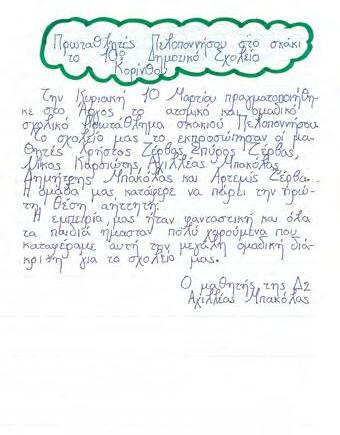 Πρωταθλητές Πελοποννήσου στο σκάκι
το 10ο Δημοτικό Σχολείο
Κορίνθου
Την Κυριακή 10 Μαρτίου πραγματοποιήθη-
κε στο Άργος το ατομικό και ομαδικό
σχολικό πρωτάθλημα σκακιού Πελοποννήσου.
Το σχολείο μας το εκπροσώπησαν οι μα-
θητές Χρήστος Ζέρβας, Σπύρος Ζέρβας,
Νίκος Καρσιώτης, Αχιλλέας Μπακόλας,
Δημήτρης Μπακόλας και Άρτεμις Ζέρβα.
Η ομάδα μας κατάφερε να πάρει την πρώ-
τη θέση αήττητη.
Η εμπειρία μας ήταν φανταστική και όλα
τα παιδιά ήμασταν πολύ χαρούμενα που
καταφέραμε αυτή την μεγάλη ομαδική διά-
κριση για το σχολείο μας.
Ο μαθητής της Δ2
Αχιλλέας Μπακόλας